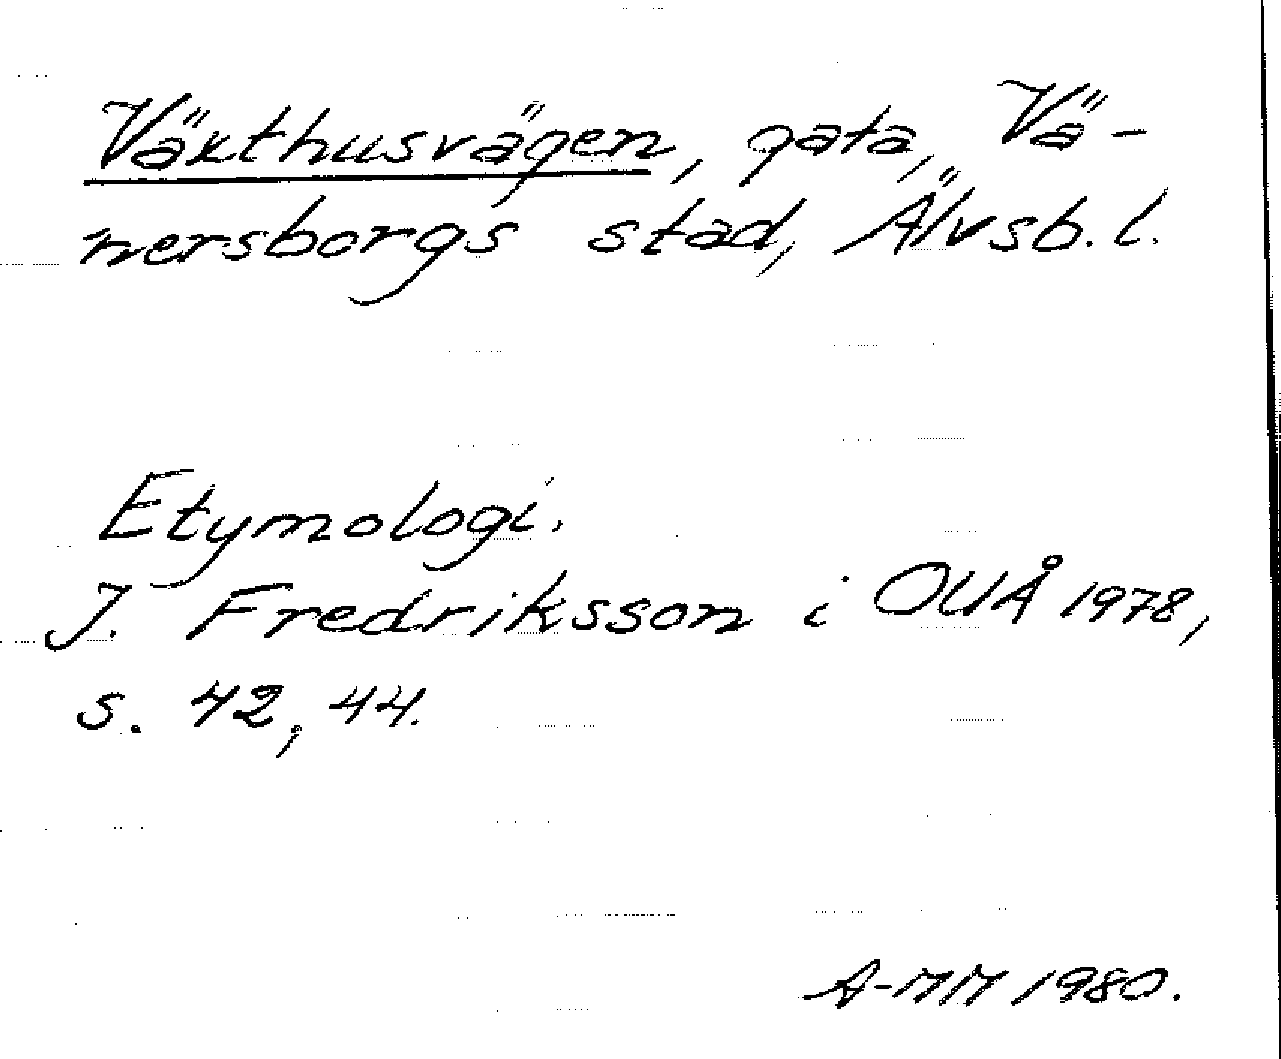 Växthusvägen, gata, Vä-
nersborgs stad, Älvsb. l.
Etymologi.
J. Fredriksson i OUÅ 1978,
s. 42, 44.
A-MM 1980.